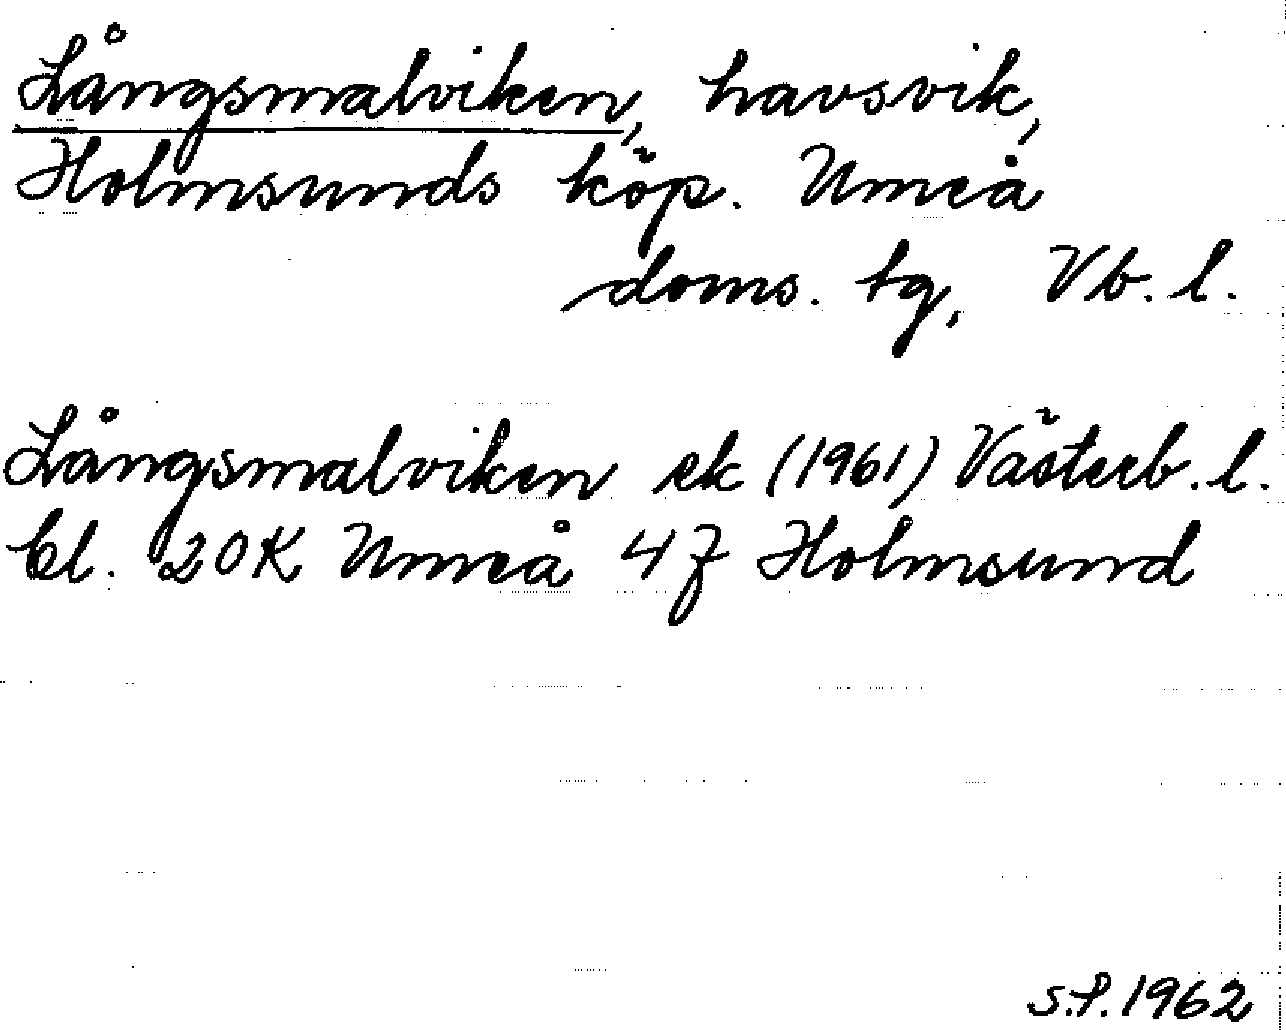 Långsmalviken, havsvik,
Holmsunds köp. Umeå
doms. tg, Vb. l.
Långsmalviken ek (1961) Västerb. l.
bl. 20K Umeå 4f Holmsund
S.P. 1962